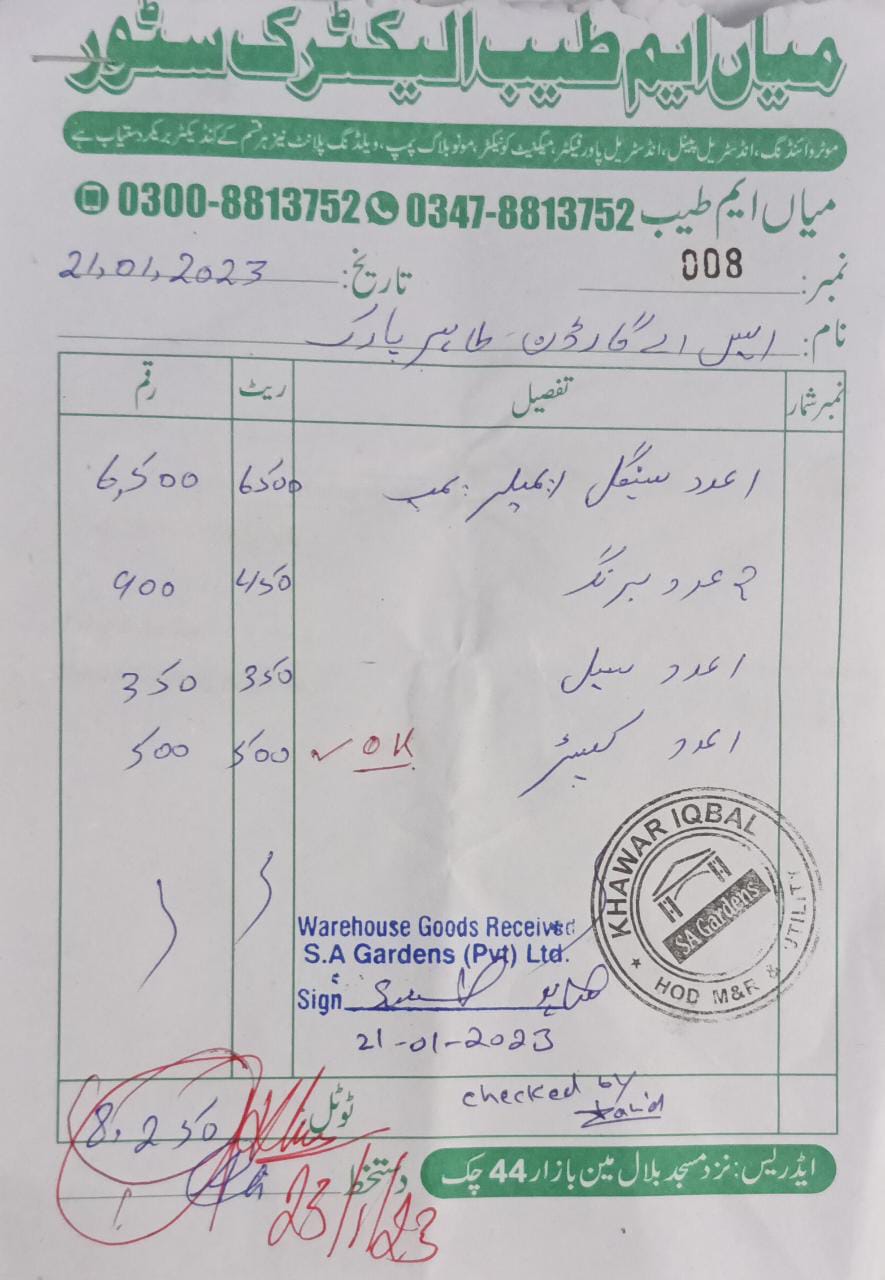 میاں ایم طیب الیکٹرک سٹور
موٹر وائنڈنگ، انڈسٹریل پینل، انڈسٹریل پاور فیکٹر، میگنیٹ کونیکٹر، مونو بلاک پمپ، ویلڈنگ پلانٹ نیز ہر قسم کے کنڈیکٹر بریکر دستیاب ہے
میاں ایم طیب 0347-8813752 0300-8813752
نمبر: 008 تاریخ: 21,01,2023
نام: ایس اے گارڈن - طاہر پارک
نمبر شمار تفصیل ریٹ رقم
1 عدد سینگل امپلر پمپ 6500 6,500
2 عدد بیرنگ 450 900
1 عدد سیل 350 350
1 عدد OK 500 500
KHAWAR IQBAL
SA Gardens
HOD M&R & UTILITY
Warehouse Goods Received
S.A Gardens (Pvt) Ltd.
Sign
21-01-2023
checked by
ٹوٹل: 8,250
دستخط
23/1/23
ایڈریس: نزد مسجد بلال مین بازار 44 چک